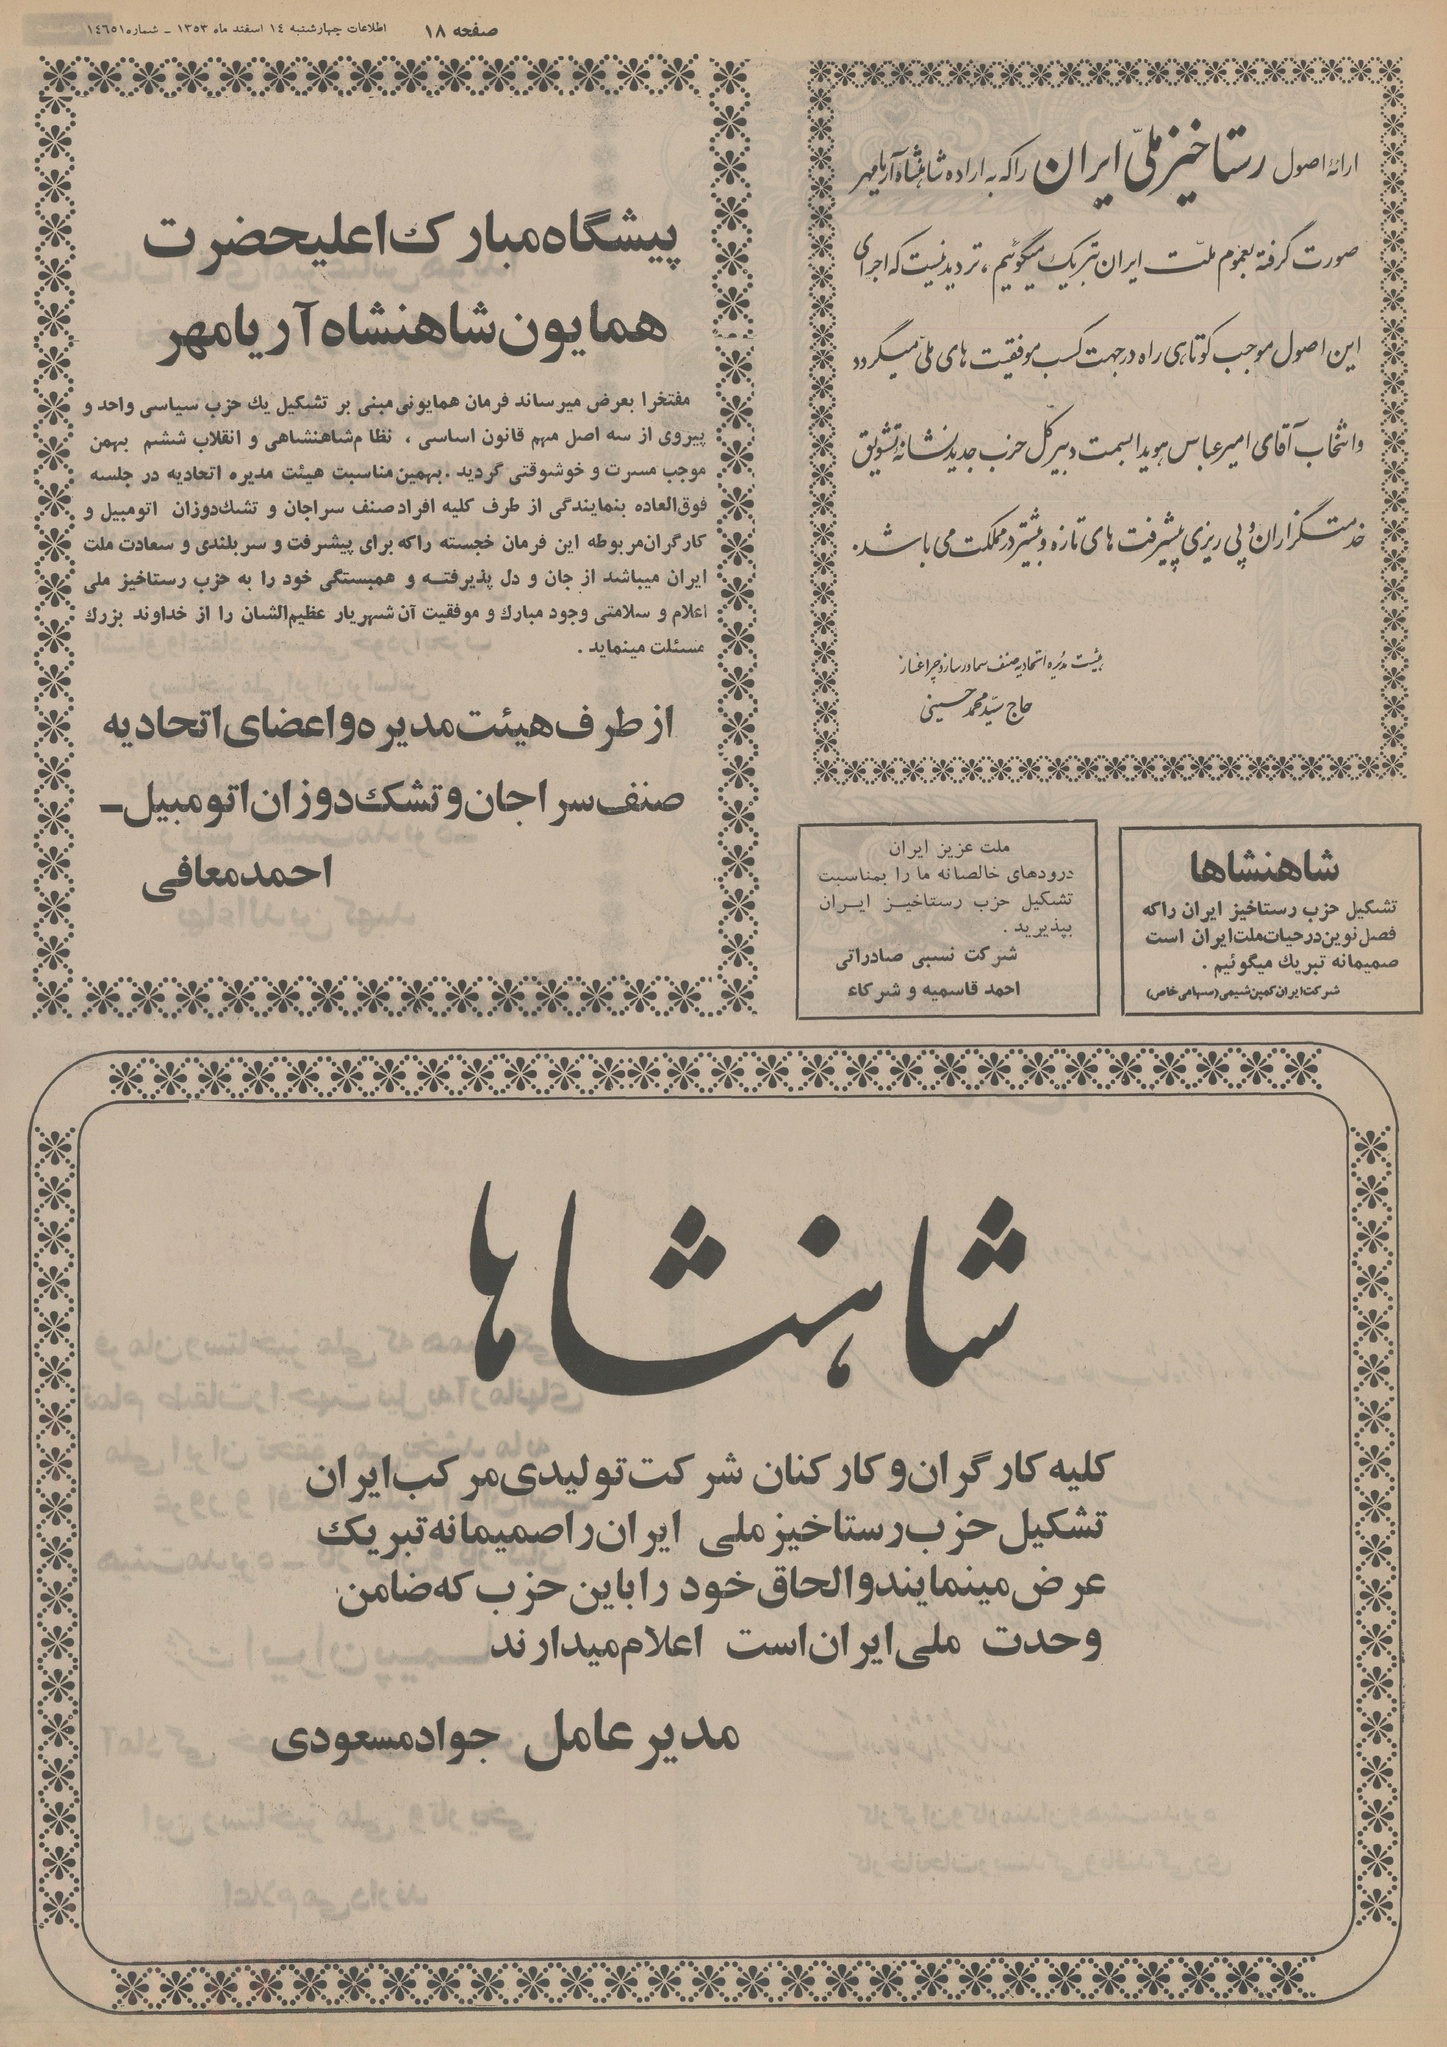 صفحه ۱۸
اطلاعات چهارشنبه ۱۴ اسفند ماه ۱۳۵۳ - شماره ۱۴۶۵۱
ارائهٔ اصول رستاخیز ملّی ایران را که به اراده شاهنشاه آریامهر
صورت گرفته بعموم ملّت ایران تبریک میگوئیم، تردید نیست که اجرای
این اصول موجب کوتاهی راه در جهت کسب موفقیت های ملّی میگردد
و انتخاب آقای امیرعباس هویدا بسمت دبیرکلّ حزب جدید نشانه تشویق
خدمتگزاران و پی ریزی پیشرفت های تازه و بیشتر در مملکت می باشد.
هیئت مدیره اتحادیه صنف سماورساز و چراغساز
حاج سیّد محمد حسینی
پیشگاه مبارک اعلیحضرت
همایون شاهنشاه آریامهر
مفتخرا بعرض میرساند فرمان همایونی مبنی بر تشکیل یك حزب سیاسی واحد و
پیروی از سه اصل مهم قانون اساسی ، نظام شاهنشاهی و انقلاب ششم بهمن
موجب مسرت و خوشوقتی گردید . بهمین مناسبت هیئت مدیره اتحادیه در جلسه
فوق‌العاده بنمایندگی از طرف کلیه افراد صنف سراجان و تشك‌دوزان اتومبیل و
کارگران مربوطه این فرمان خجسته را که برای پیشرفت و سربلندی و سعادت ملت
ایران میباشد از جان و دل پذیرفته و همبستگی خود را به حزب رستاخیز ملی
اعلام و سلامتی وجود مبارك و موفقیت آن شهریار عظیم‌الشان را از خداوند بزرك
مسئلت مینماید .
از طرف هیئت مدیره و اعضای اتحادیه
صنف سراجان و تشک دوزان اتومبیل ـ
احمد معافی
شاهنشاها
تشکیل حزب رستاخیز ایران را که
فصل نوین در حیات ملت ایران است
صمیمانه تبریك میگوئیم .
شرکت ایران کمپن شیمی (سهامی خاص)
ملت عزیز ایران
درودهای خالصانه ما را بمناسبت
تشکیل حزب رستاخیز ایران
بپذیرید .
شرکت نسبی صادراتی
احمد قاسمیه و شرکاء
شاهنشاها
کلیه کارگران و کارکنان شرکت تولیدی مرکب ایران
تشکیل حزب رستاخیز ملی ایران را صمیمانه تبریک
عرض مینمایند و الحاق خود را باین حزب که ضامن
وحدت ملی ایران است اعلام میدارند
مدیر عامل جواد مسعودی